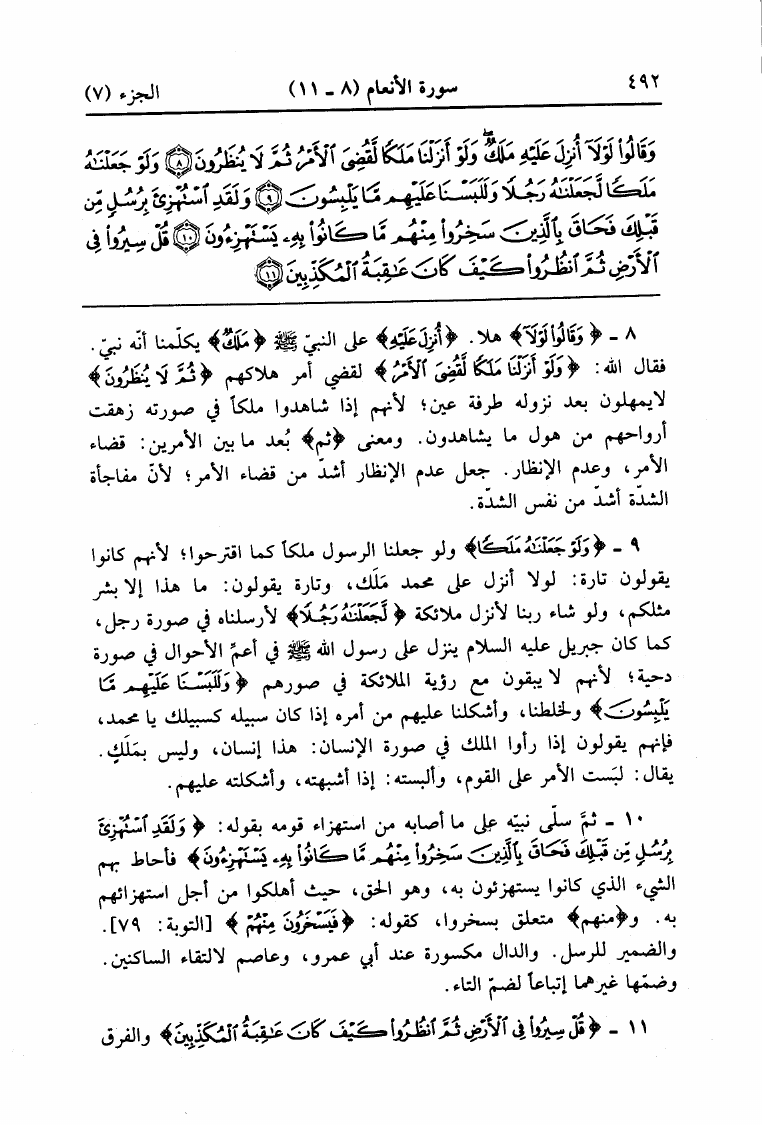 ٤٩٢ سورة الأنعام (٨ ـ ١١) الجزء (٧)
وَقَالُوا۟ لَوْلَآ أُنزِلَ عَلَيْهِ مَلَكٌ ۖ وَلَوْ أَنزَلْنَا مَلَكًا لَّقُضِىَ ٱلْأَمْرُ ثُمَّ لَا يُنظَرُونَ ٨ وَلَوْ جَعَلْنَٰهُ
مَلَكًا لَّجَعَلْنَٰهُ رَجُلًا وَلَلَبَسْنَا عَلَيْهِم مَّا يَلْبِسُونَ ٩ وَلَقَدِ ٱسْتُهْزِئَ بِرُسُلٍ مِّن
قَبْلِكَ فَحَاقَ بِٱلَّذِينَ سَخِرُوا۟ مِنْهُم مَّا كَانُوا۟ بِهِۦ يَسْتَهْزِءُونَ ١٠ قُلْ سِيرُوا۟ فِى
ٱلْأَرْضِ ثُمَّ ٱنظُرُوا۟ كَيْفَ كَانَ عَٰقِبَةُ ٱلْمُكَذِّبِينَ ١١
٨ ـ ﴿وَقَالُوا۟ لَوْلَآ﴾ هلا. ﴿أُنزِلَ عَلَيْهِ﴾ على النبيّ ﷺ ﴿مَلَكٌ﴾ يكلّمنا أنّه نبيّ.
فقال الله: ﴿وَلَوْ أَنزَلْنَا مَلَكًا لَّقُضِىَ ٱلْأَمْرُ﴾ لقضي أمر هلاكهم ﴿ثُمَّ لَا يُنظَرُونَ﴾
لايمهلون بعد نزوله طرفة عين؛ لأنهم إذا شاهدوا ملكاً في صورته زهقت
أرواحهم من هول ما يشاهدون. ومعنى ﴿ثم﴾ بُعد ما بين الأمرين: قضاء
الأمر، وعدم الإنظار. جعل عدم الإنظار أشدّ من قضاء الأمر؛ لأنّ مفاجأة
الشدّة أشدّ من نفس الشدّة.
٩ ـ ﴿وَلَوْ جَعَلْنَٰهُ مَلَكًا﴾ ولو جعلنا الرسول ملكاً كما اقترحوا؛ لأنهم كانوا
يقولون تارة: لولا أنزل على محمد مَلَك، وتارة يقولون: ما هذا إلا بشر
مثلكم، ولو شاء ربنا لأنزل ملائكة ﴿لَّجَعَلْنَٰهُ رَجُلًا﴾ لأرسلناه في صورة رجل،
كما كان جبريل عليه السلام ينزل على رسول الله ﷺ في أعمِّ الأحوال في صورة
دحية؛ لأنهم لا يبقون مع رؤية الملائكة في صورهم ﴿وَلَلَبَسْنَا عَلَيْهِم مَّا
يَلْبِسُونَ﴾ ولخلطنا، وأشكلنا عليهم من أمره إذا كان سبيله كسبيلك يا محمد،
فإنهم يقولون إذا رأوا الملك في صورة الإنسان: هذا إنسان، وليس بمَلَكٍ.
يقال: لبَست الأمر على القوم، وألبسته: إذا أشبهته، وأشكلته عليهم.
١٠ ـ ثمَّ سلّى نبيّه على ما أصابه من استهزاء قومه بقوله: ﴿وَلَقَدِ ٱسْتُهْزِئَ
بِرُسُلٍ مِّن قَبْلِكَ فَحَاقَ بِٱلَّذِينَ سَخِرُوا۟ مِنْهُم مَّا كَانُوا۟ بِهِۦ يَسْتَهْزِءُونَ﴾ فأحاط بهم
الشيء الذي كانوا يستهزئون به، وهو الحق، حيث أهلكوا من أجل استهزائهم
به. و﴿منهم﴾ متعلق بسخروا، كقوله: ﴿فَيَسْخَرُونَ مِنْهُمْ﴾ [التوبة: ٧٩].
والضمير للرسل. والدال مكسورة عند أبي عمرو، وعاصم لالتقاء الساكنين.
وضمّها غيرهما إتباعاً لضمّ التاء.
١١ ـ ﴿قُلْ سِيرُوا۟ فِى ٱلْأَرْضِ ثُمَّ ٱنظُرُوا۟ كَيْفَ كَانَ عَٰقِبَةُ ٱلْمُكَذِّبِينَ﴾ والفرق